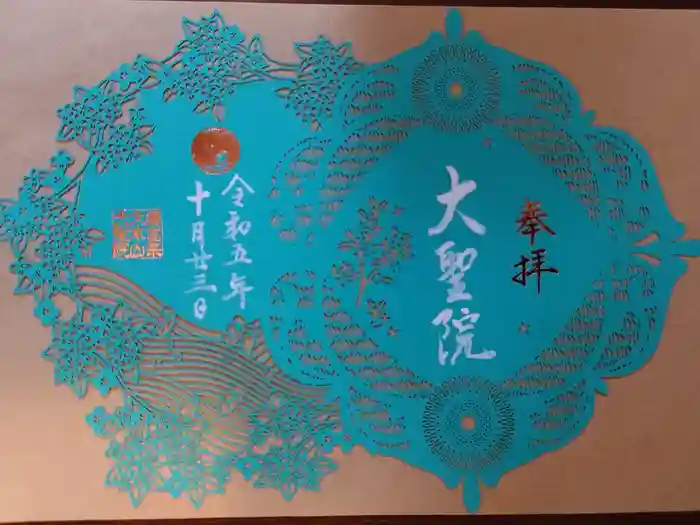 奉拝
大聖院
令和五年
十月廿三日